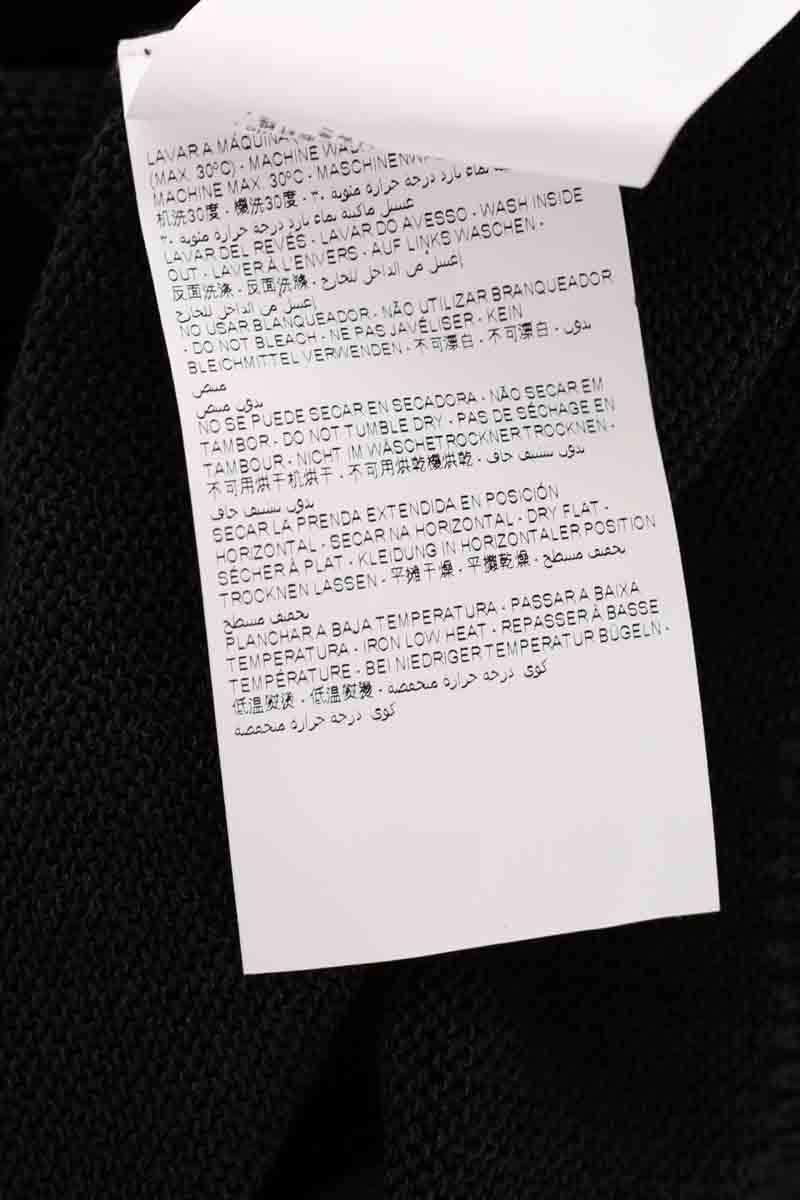 LAVAR A MÁQUINA
(MAX. 30ºC) - MACHINE
MACHINE MAX. 30ºC - MASCHINENW
机洗30度 - 機洗30度 - غسيل ماكينة بماء بارد درجة حرارة مئوية ٣٠
غسيل ماكينة بماء بارد درجة حرارة مئوية ٣٠
LAVAR DEL REVÉS - LAVAR DO AVESSO - WASH INSIDE
OUT - LAVER À L'ENVERS - AUF LINKS WASCHEN -
反面洗涤 - 反面洗滌 - إغسل من الداخل للخارج
إغسل من الداخل للخارج
NO USAR BLANQUEADOR - NÃO UTILIZAR BRANQUEADOR
- DO NOT BLEACH - NE PAS JAVÉLISER - KEIN
BLEICHMITTEL VERWENDEN - 不可漂白 - 不可漂白 - بدون
مبيض
بدون مبيض
NO SE PUEDE SECAR EN SECADORA - NÃO SECAR EM
TAMBOR - DO NOT TUMBLE DRY - PAS DE SÉCHAGE EN
TAMBOUR - NICHT IM WÄSCHETROCKNER TROCKNEN -
不可用烘干机烘干 - 不可用烘乾機烘乾 - بدون تنشيف جاف
بدون تنشيف جاف
SECAR LA PRENDA EXTENDIDA EN POSICIÓN
HORIZONTAL - SECAR NA HORIZONTAL - DRY FLAT -
SÉCHER À PLAT - KLEIDUNG IN HORIZONTALER POSITION
TROCKNEN LASSEN - 平摊干燥 - 平攤乾燥 - تجفيف مسطح
تجفيف مسطح
PLANCHAR A BAJA TEMPERATURA - PASSAR A BAIXA
TEMPERATURA - IRON LOW HEAT - REPASSER À BASSE
TEMPÉRATURE - BEI NIEDRIGER TEMPERATUR BÜGELN -
低温熨烫 - 低溫熨燙 - كوى درجة حرارة منخفضة
كوى درجة حرارة منخفضة